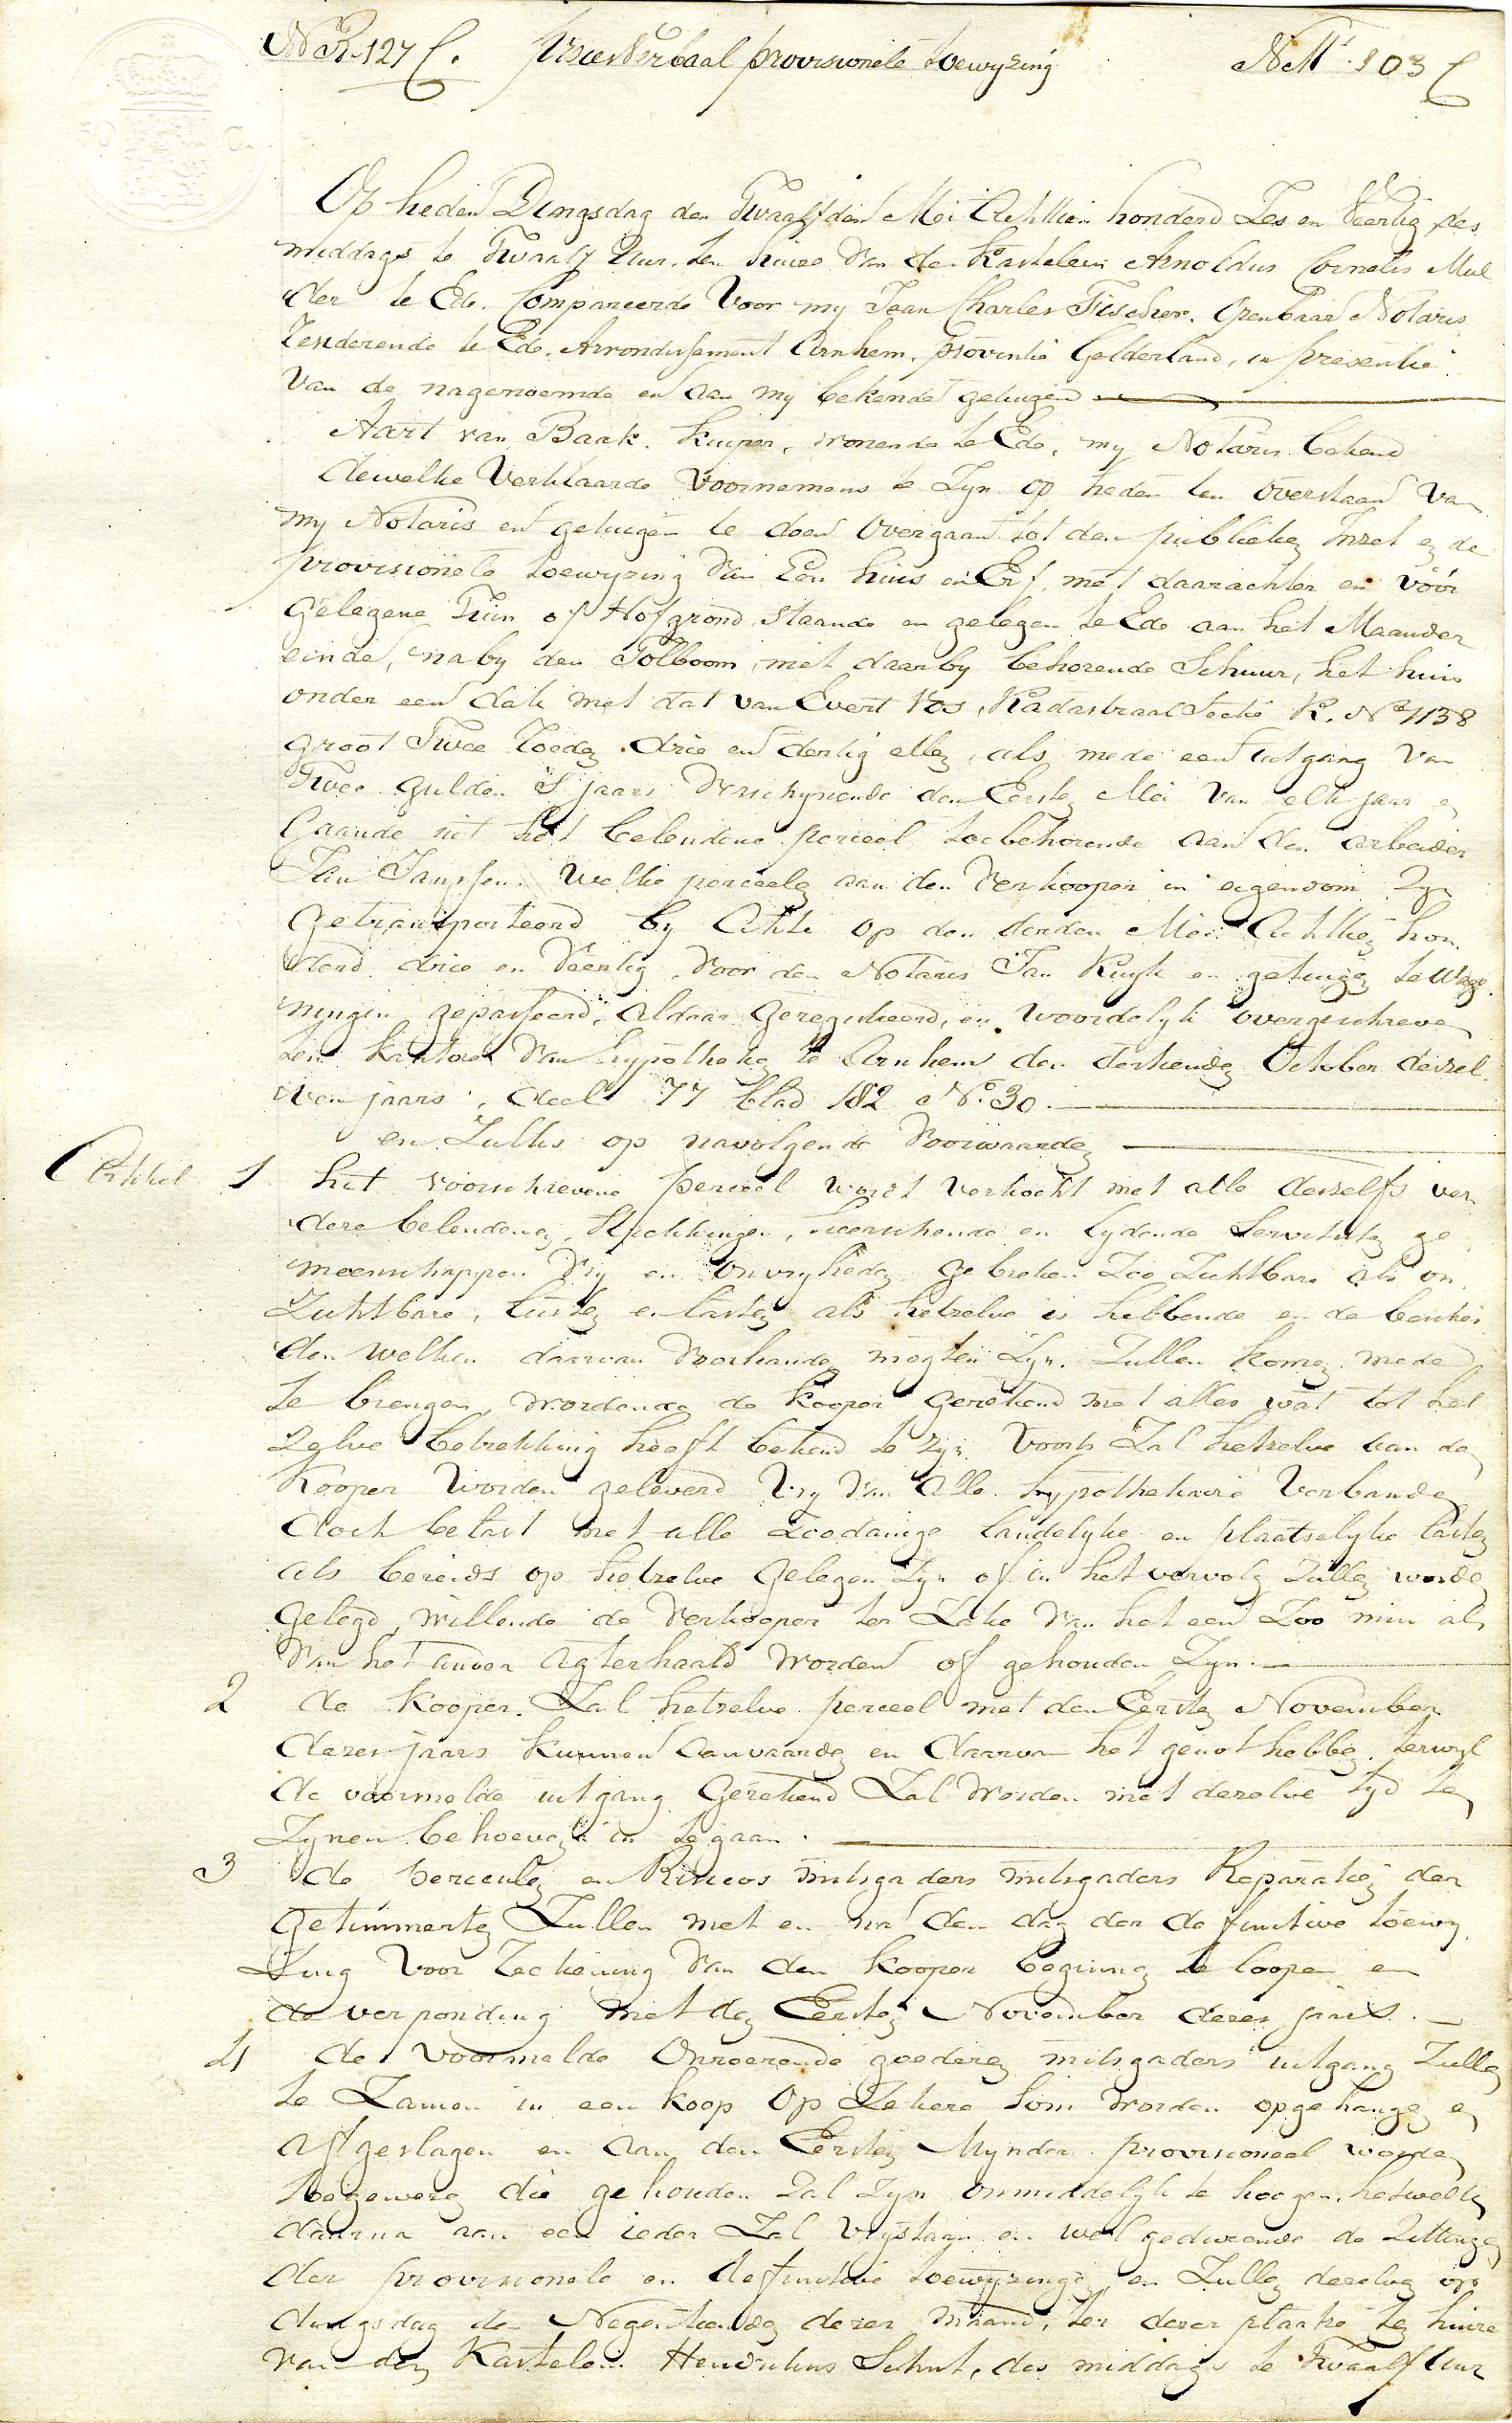 N R 127 C. Proces Verbaal provisionele toewyzing N Mt 103 C
50 C.
Op heden Dingsdag den Twaalfden Mei Achttien honderd Zes en Veertig des
middags te Twaalf Uur ten huize van den Kastelein Arnoldus Cornelis Mul
der te Ede. Compareerde Voor my Jean Charles Fischer. Openbaar Notaris
Residerende te Ede. Arrondissement Arnhem. provintie Gelderland, in presentie
Van de nagenoemde en aan my bekende getuigen
Aart van Baak. Kuiper, wonende te Ede, my Notaris bekend
dewelke Verklaarde Voornemens te Zyn op heden ten overstaan Van
my Notaris en getuigen te doen Overgaan tot den publieken Inzet en de
provisionele toewyzing Van Een huis en Erf met daarachter en vóór
gelegene Tuin of Hofgrond Staande en gelegen te Ede aan het Maander
einde, naby den Tolboom, met daarby behorende Schuur, het huis
onder een dak met dat van Evert Vos, Kadastraal Sectie K. No 1138
groot Twee Roeden drie en dertig ellen, als mede een uitgang van
Twee gulden 's jaars Verschynende den Eersten Mei Van elk jaar en
Gaande uit het belendene perceel toebehorende aan den arbeider
Jan Janssen. Welke perceelen aan den Verkooper in eigendom Zyn
getransporteerd by Akte op den derden Mei Achttien hon
derd drie en Veertig Voor den Notaris Jan Kuyk en getuigen te Wage
ningen gepasseerd, aldaar geregistreerd, en woordelyk overgeschreven
ten kantore Van hypotheken te Arnhem den dertienden October deszel
ven jaars, deel 77 blad 182 No. 30.
en Zulks op navolgende Voorwaarden
Artikel 1 het voorschrevene perceel wordt verkocht met alle deszelfs ver
dere belendenen, strekkingen, heerschende en lydende Servituten ge
meenschappen Vry en Onvryheden gebreken Zoo Zichtbare als on
Zichtbare, lusten en lasten als hetzelve is hebbende en de beschei
den welken daarvan Voorhanden mogten Zyn. Zullen komen mede
te brengen, wordende de kooper gerekend met alles wat tot het
zelve betrekking heeft bekend te zyn. Voorts Zal hetzelve aan den
Kooper Worden geleverd Vry Van alle hypothekaire Verbanden
doch belast met alle Zoodanige landelyke en plaatselyke lasten
als bereids op hetzelve gelegen Zyn of in het vervolg Zullen worden
gelegd, willende de Verkooper ter Zake Van het een Zoo min als
Van het ander agterhaald Worden of gehouden Zyn.
2 de Kooper. Zal hetzelve perceel met den Eersten November
dezes jaars kunnen aanvaarden en daarvan het genot hebben, terwyl
de voormelde uitgang gerekend Zal Worden met dezelve tyd te
Zynen behoeven in te gaan.
3 de perceulen en Risicos mitsgaders mitsgaders Reparatien der
getimmerten Zullen met en na den dag der definitive toewy
Zing Voor Rekening Van den kooper beginnen te loopen en
de verponding met den Eersten November dezes jaars.
4 de Voormelde Onroerende goederen mitsgaders uitgang Zullen
te Zamen in een koop Op Zekere Som Worden opgehangen en
afgeslagen en aan den Eersten Mynder provisioneel worden
toegewezen die gehouden Zal Zyn onmiddelyk te hoogen, hetwelk
daarna aan een ieder Zal Vrystaan en wel gedurende de Zittingen
der provisionele en definitive toewyzingen, en Zullen dezelve op
dingsdag den Negentienden dezer maand, ter dezer plaatse ten huize
van den Kastelein Hendrikus Schut, des middags te Twaalf Uur